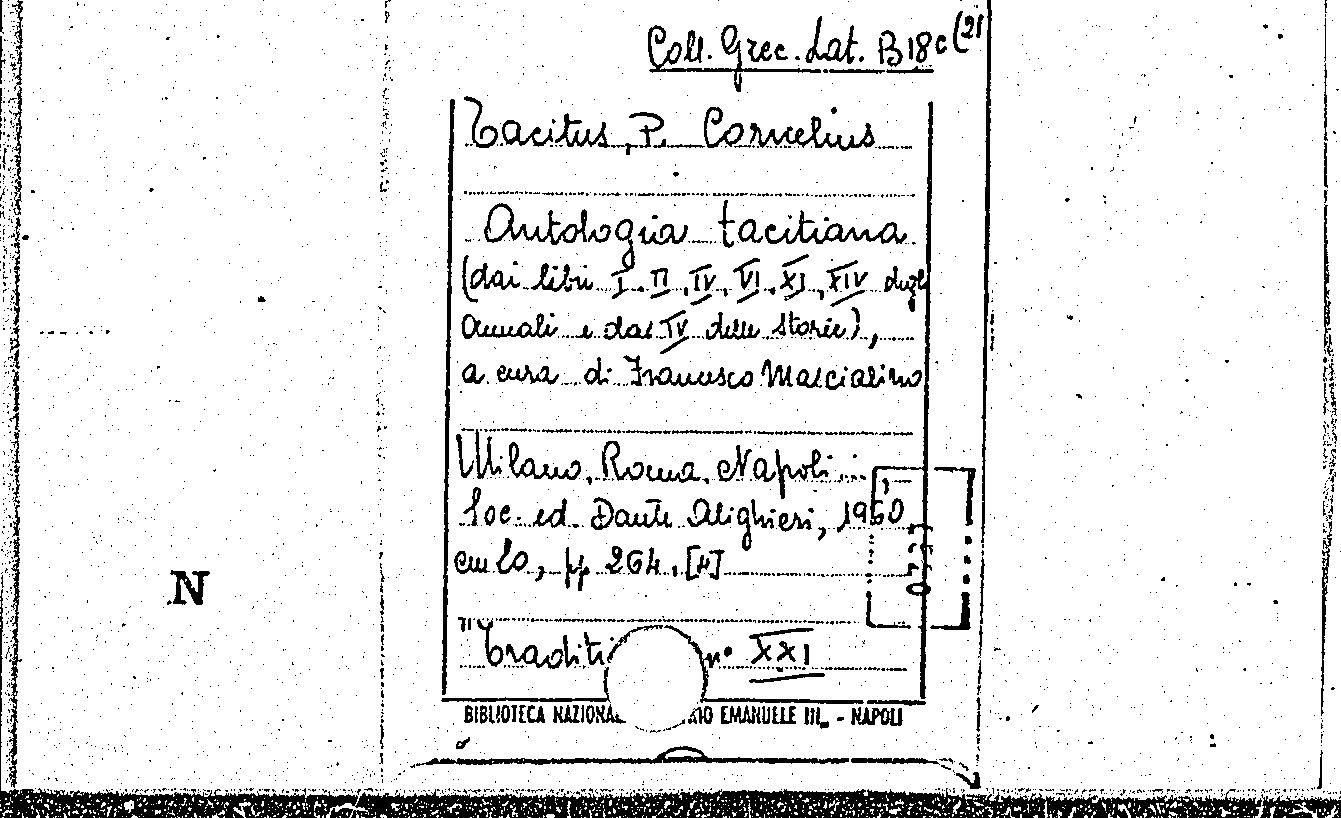 Coll. Grec. Lat. B 18 c (21
Tacitus, P. Cornelius
Antologia tacitiana
(dai libri I. II. IV. VI. XI. XIV degli
Annali e dal IV delle Storie),
a cura di Francesco Mascialino
Milano, Roma, Napoli...,
Soc. ed. Dante Alighieri, 1960
cm 20, pp 264. [4]
n° XXI
BIBLIOTECA EMANUELE III - NAPOLI
N